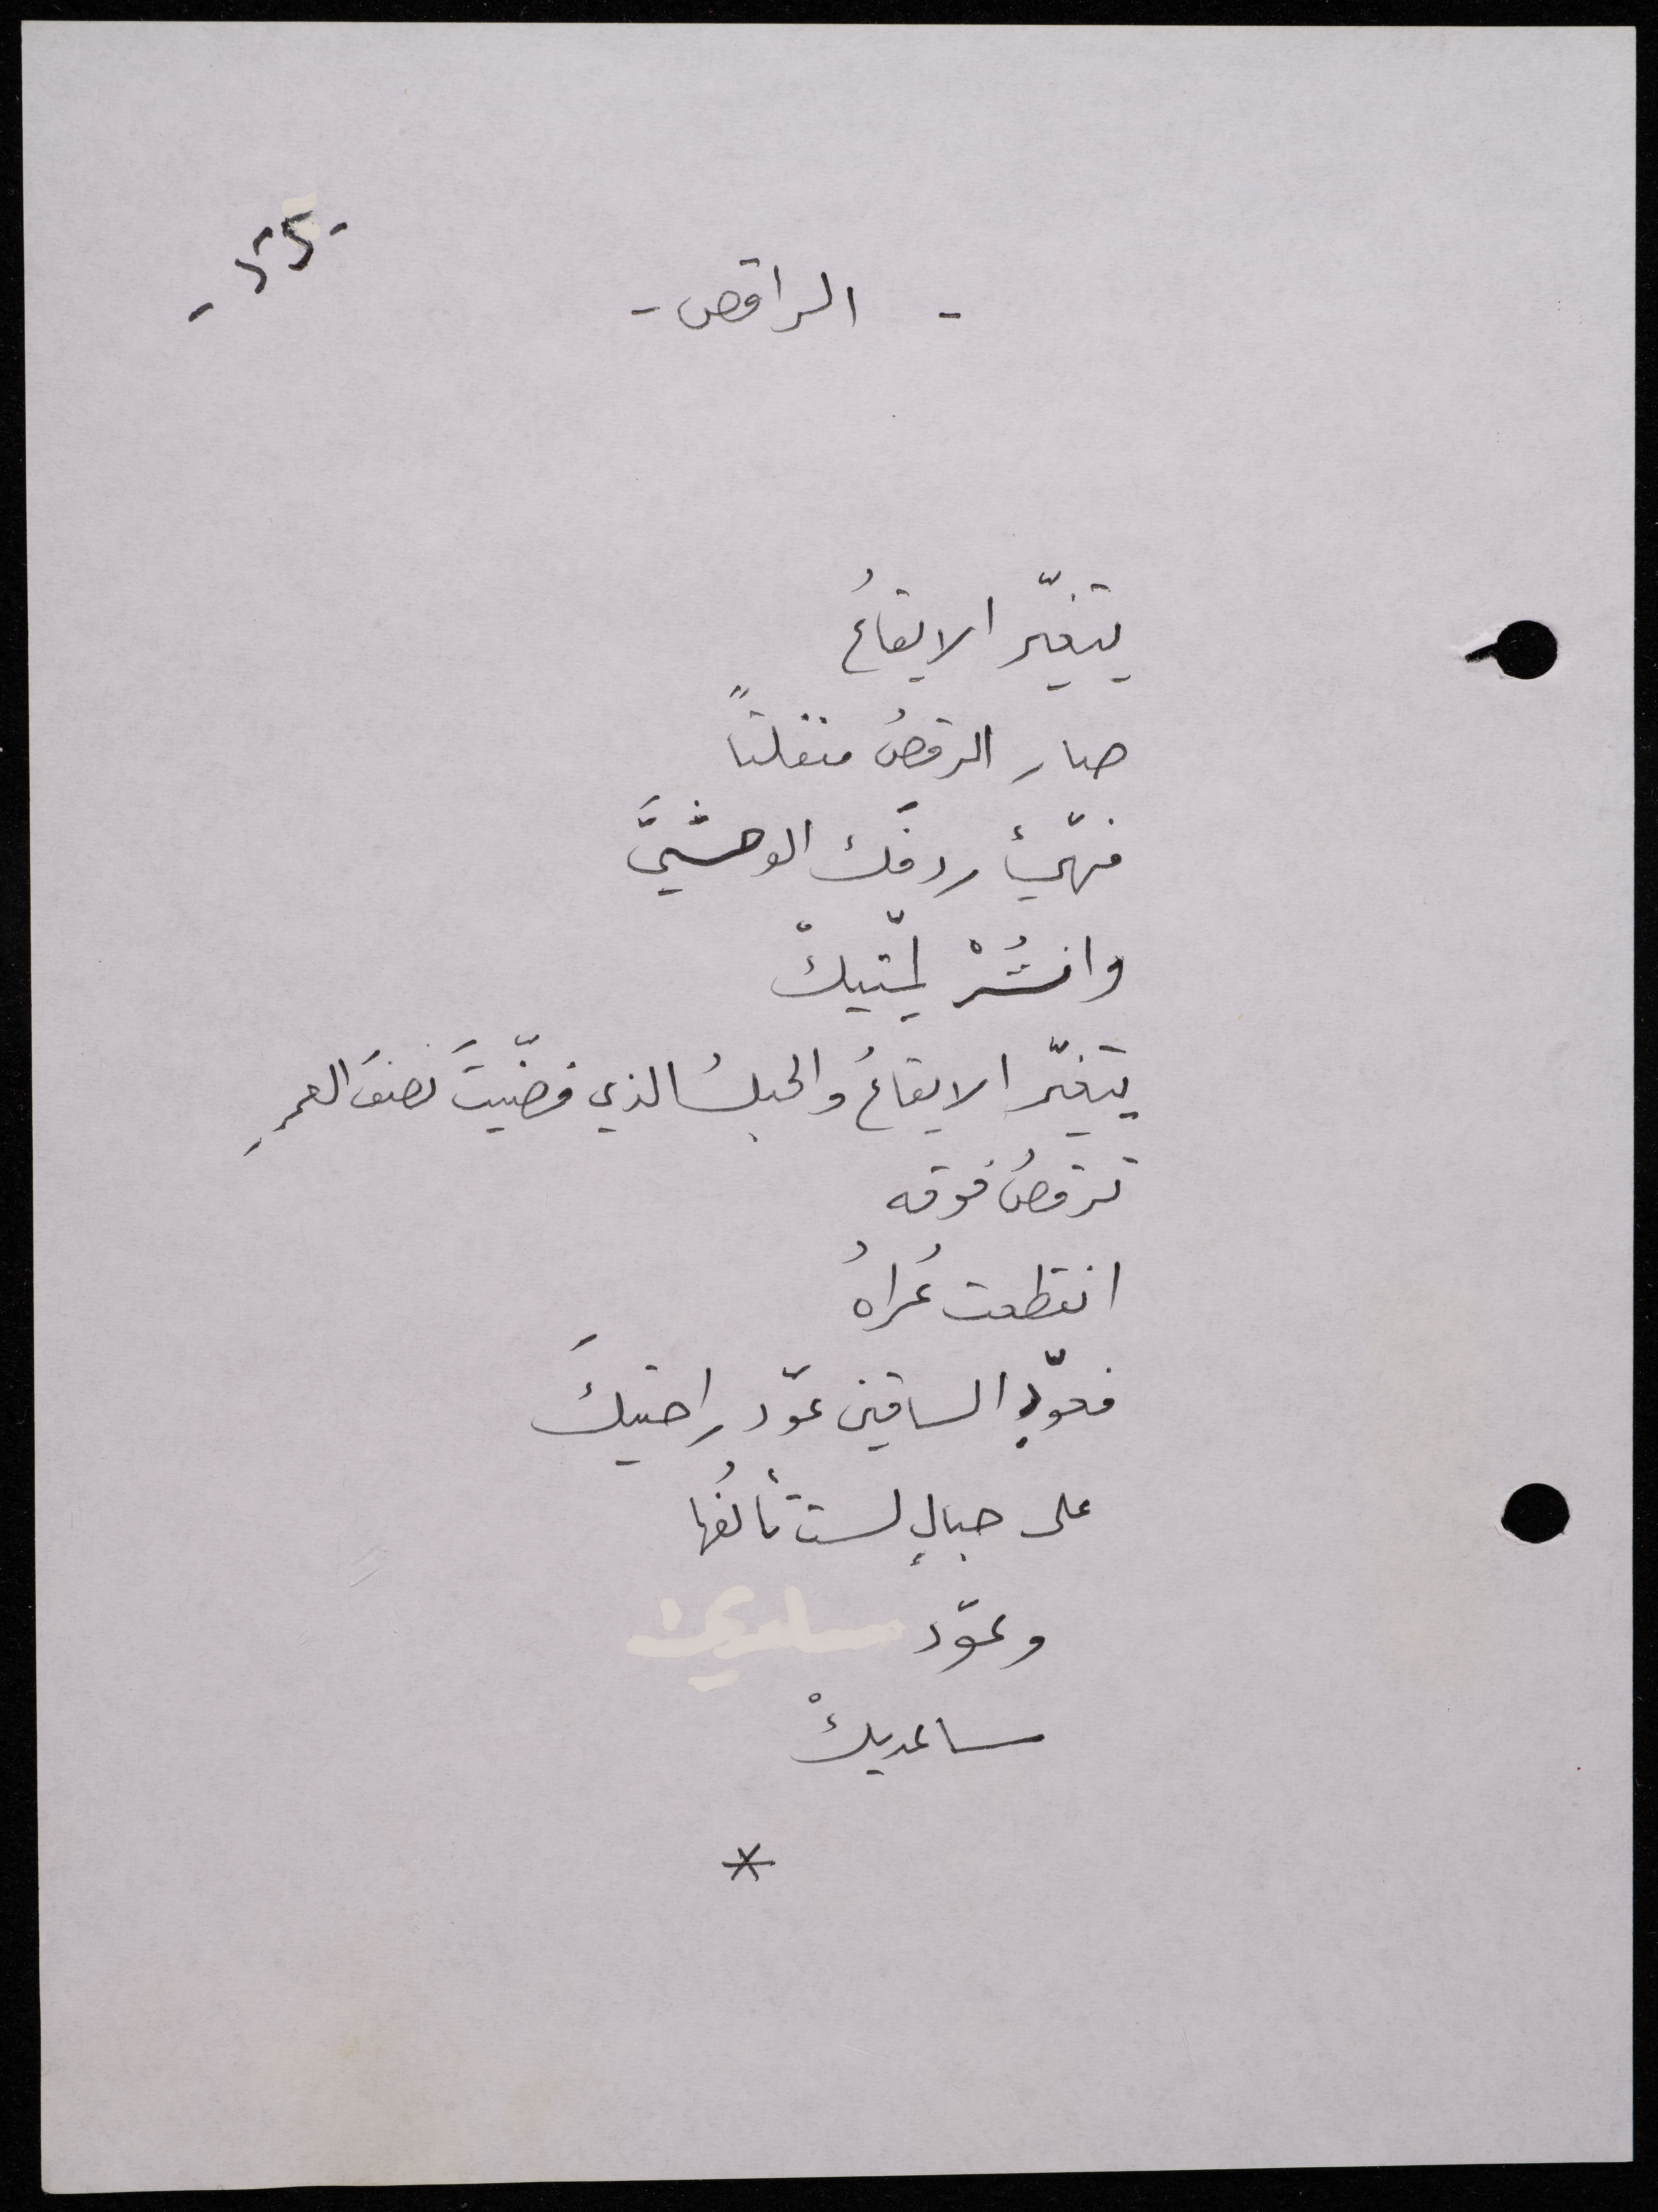 - 55 -
- الراقص -
يتغيّر الايقاعُ
صار الرقصُ منفلتاً
فهيّئ ردفَك الوحشيَّ
وانشُرْ لمّتيكْ
يتغيّر الايقاعُ والحبلُ الذي قضّيتَ نصفَ العمرِ
ترقصُ فوقه
انقطعت عُراهُ
فعوّدِ الساقين عوّد راحتيكَ
على حبالٍ لست تألفُها
وعوّد
ساعديكْ
*